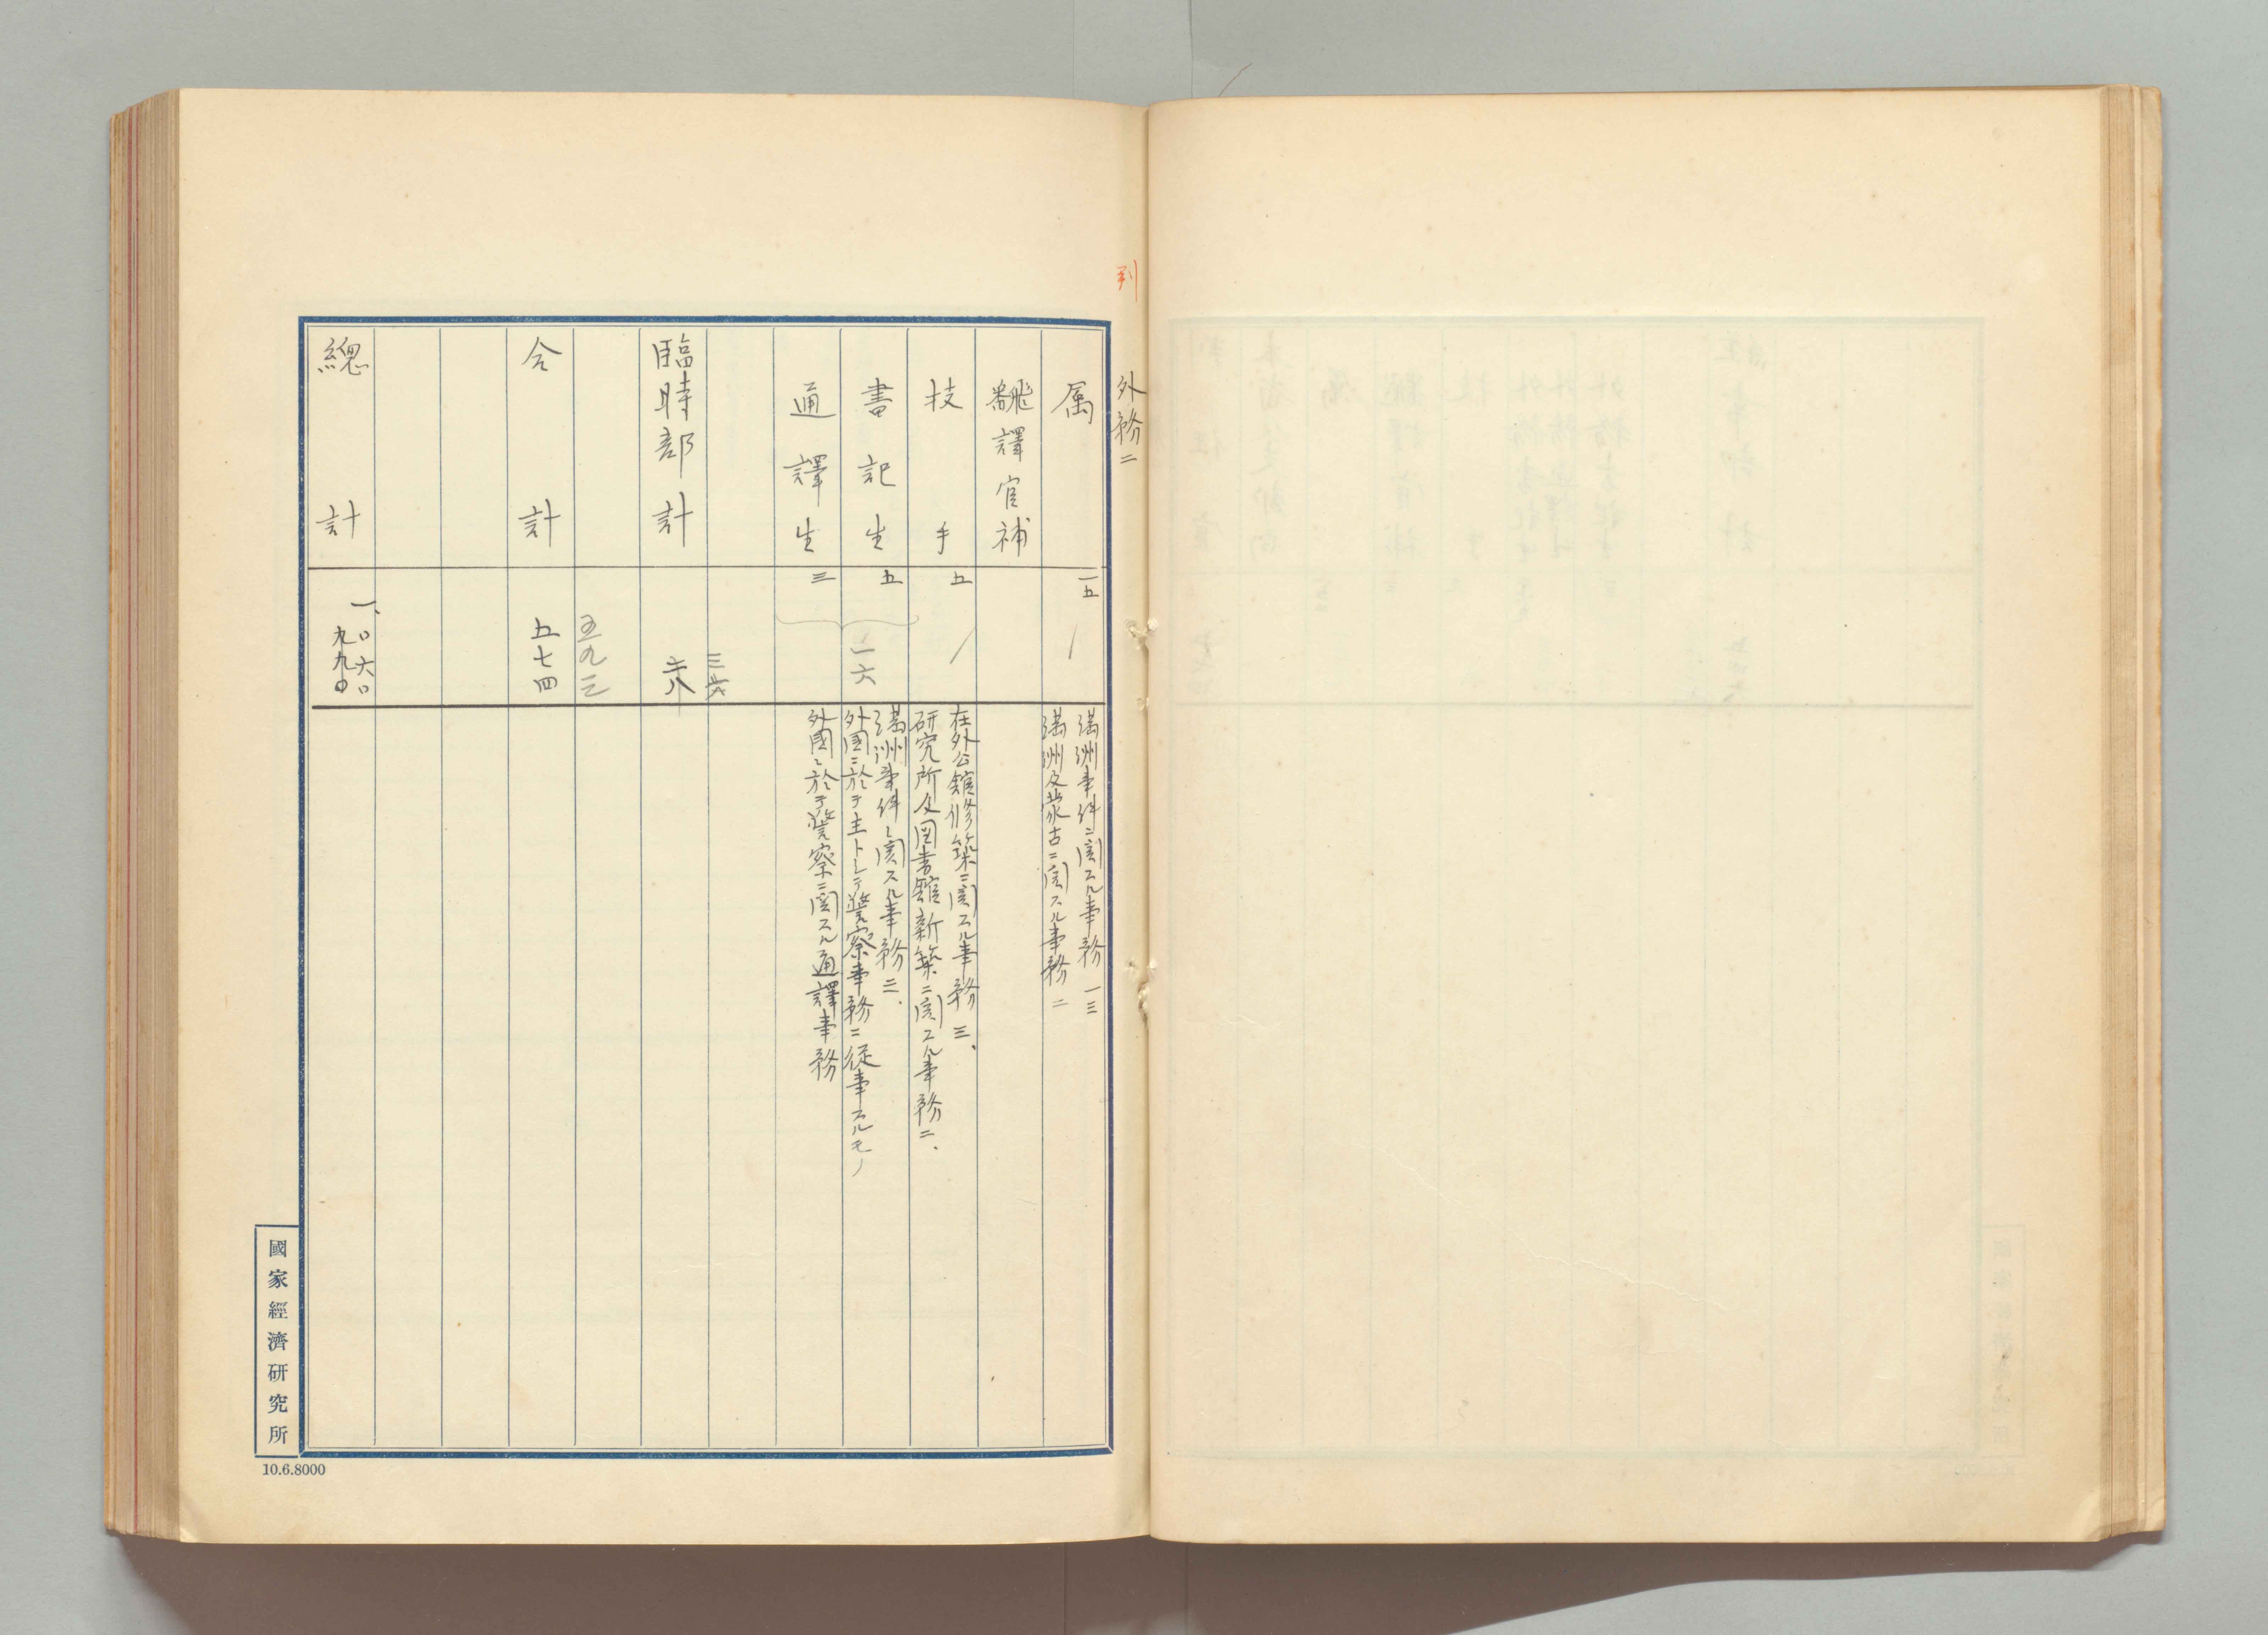 判
外務二
属 一五
満洲事件ニ関スル事務 一三
満洲及蒙古ニ関スル事務 二
飜譯官補
技手 五
在外公館修築ニ関スル事務 三、
研究所及図書館新築ニ関スル事務 二、
書記生 五
一六
満洲事件ニ関スル事務 三、
外國ニ於テ主トシテ警察事務ニ従事スルモノ
通譯生 三
外國ニ於テ警察ニ関スル通譯事務
三六
臨時部計
五九三
合計 五七四
總計 一、〇六〇
國家經濟研究所
10.6.8000